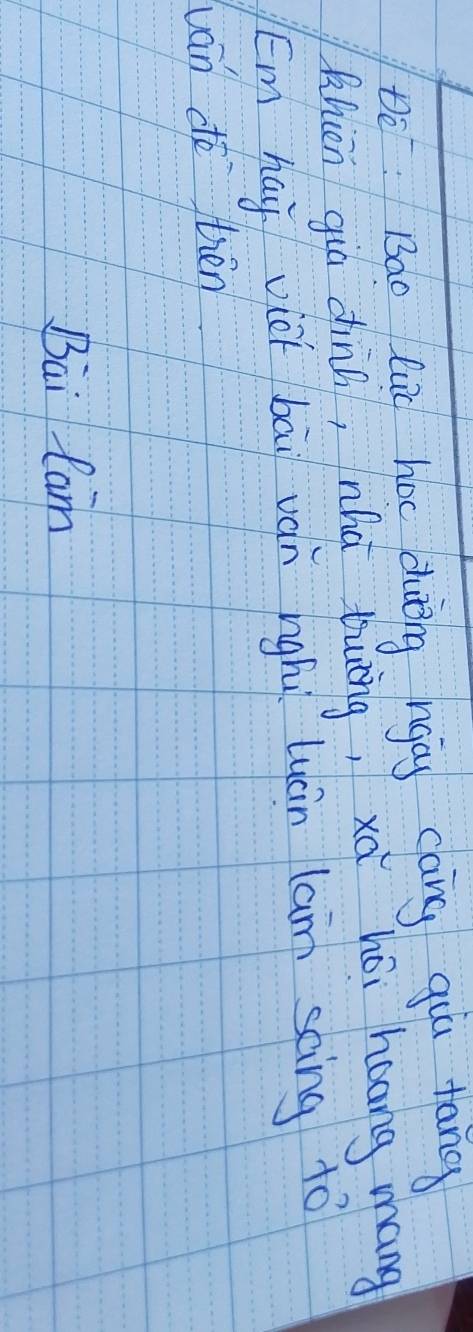 Đề: Bạo lực học đường ngày càng gia tăng
khiến gia đình, nhà trường, xã hội hoang mang
Em hãy viết bài văn nghị luận làm sáng tỏ
vấn đề trên
Bài làm